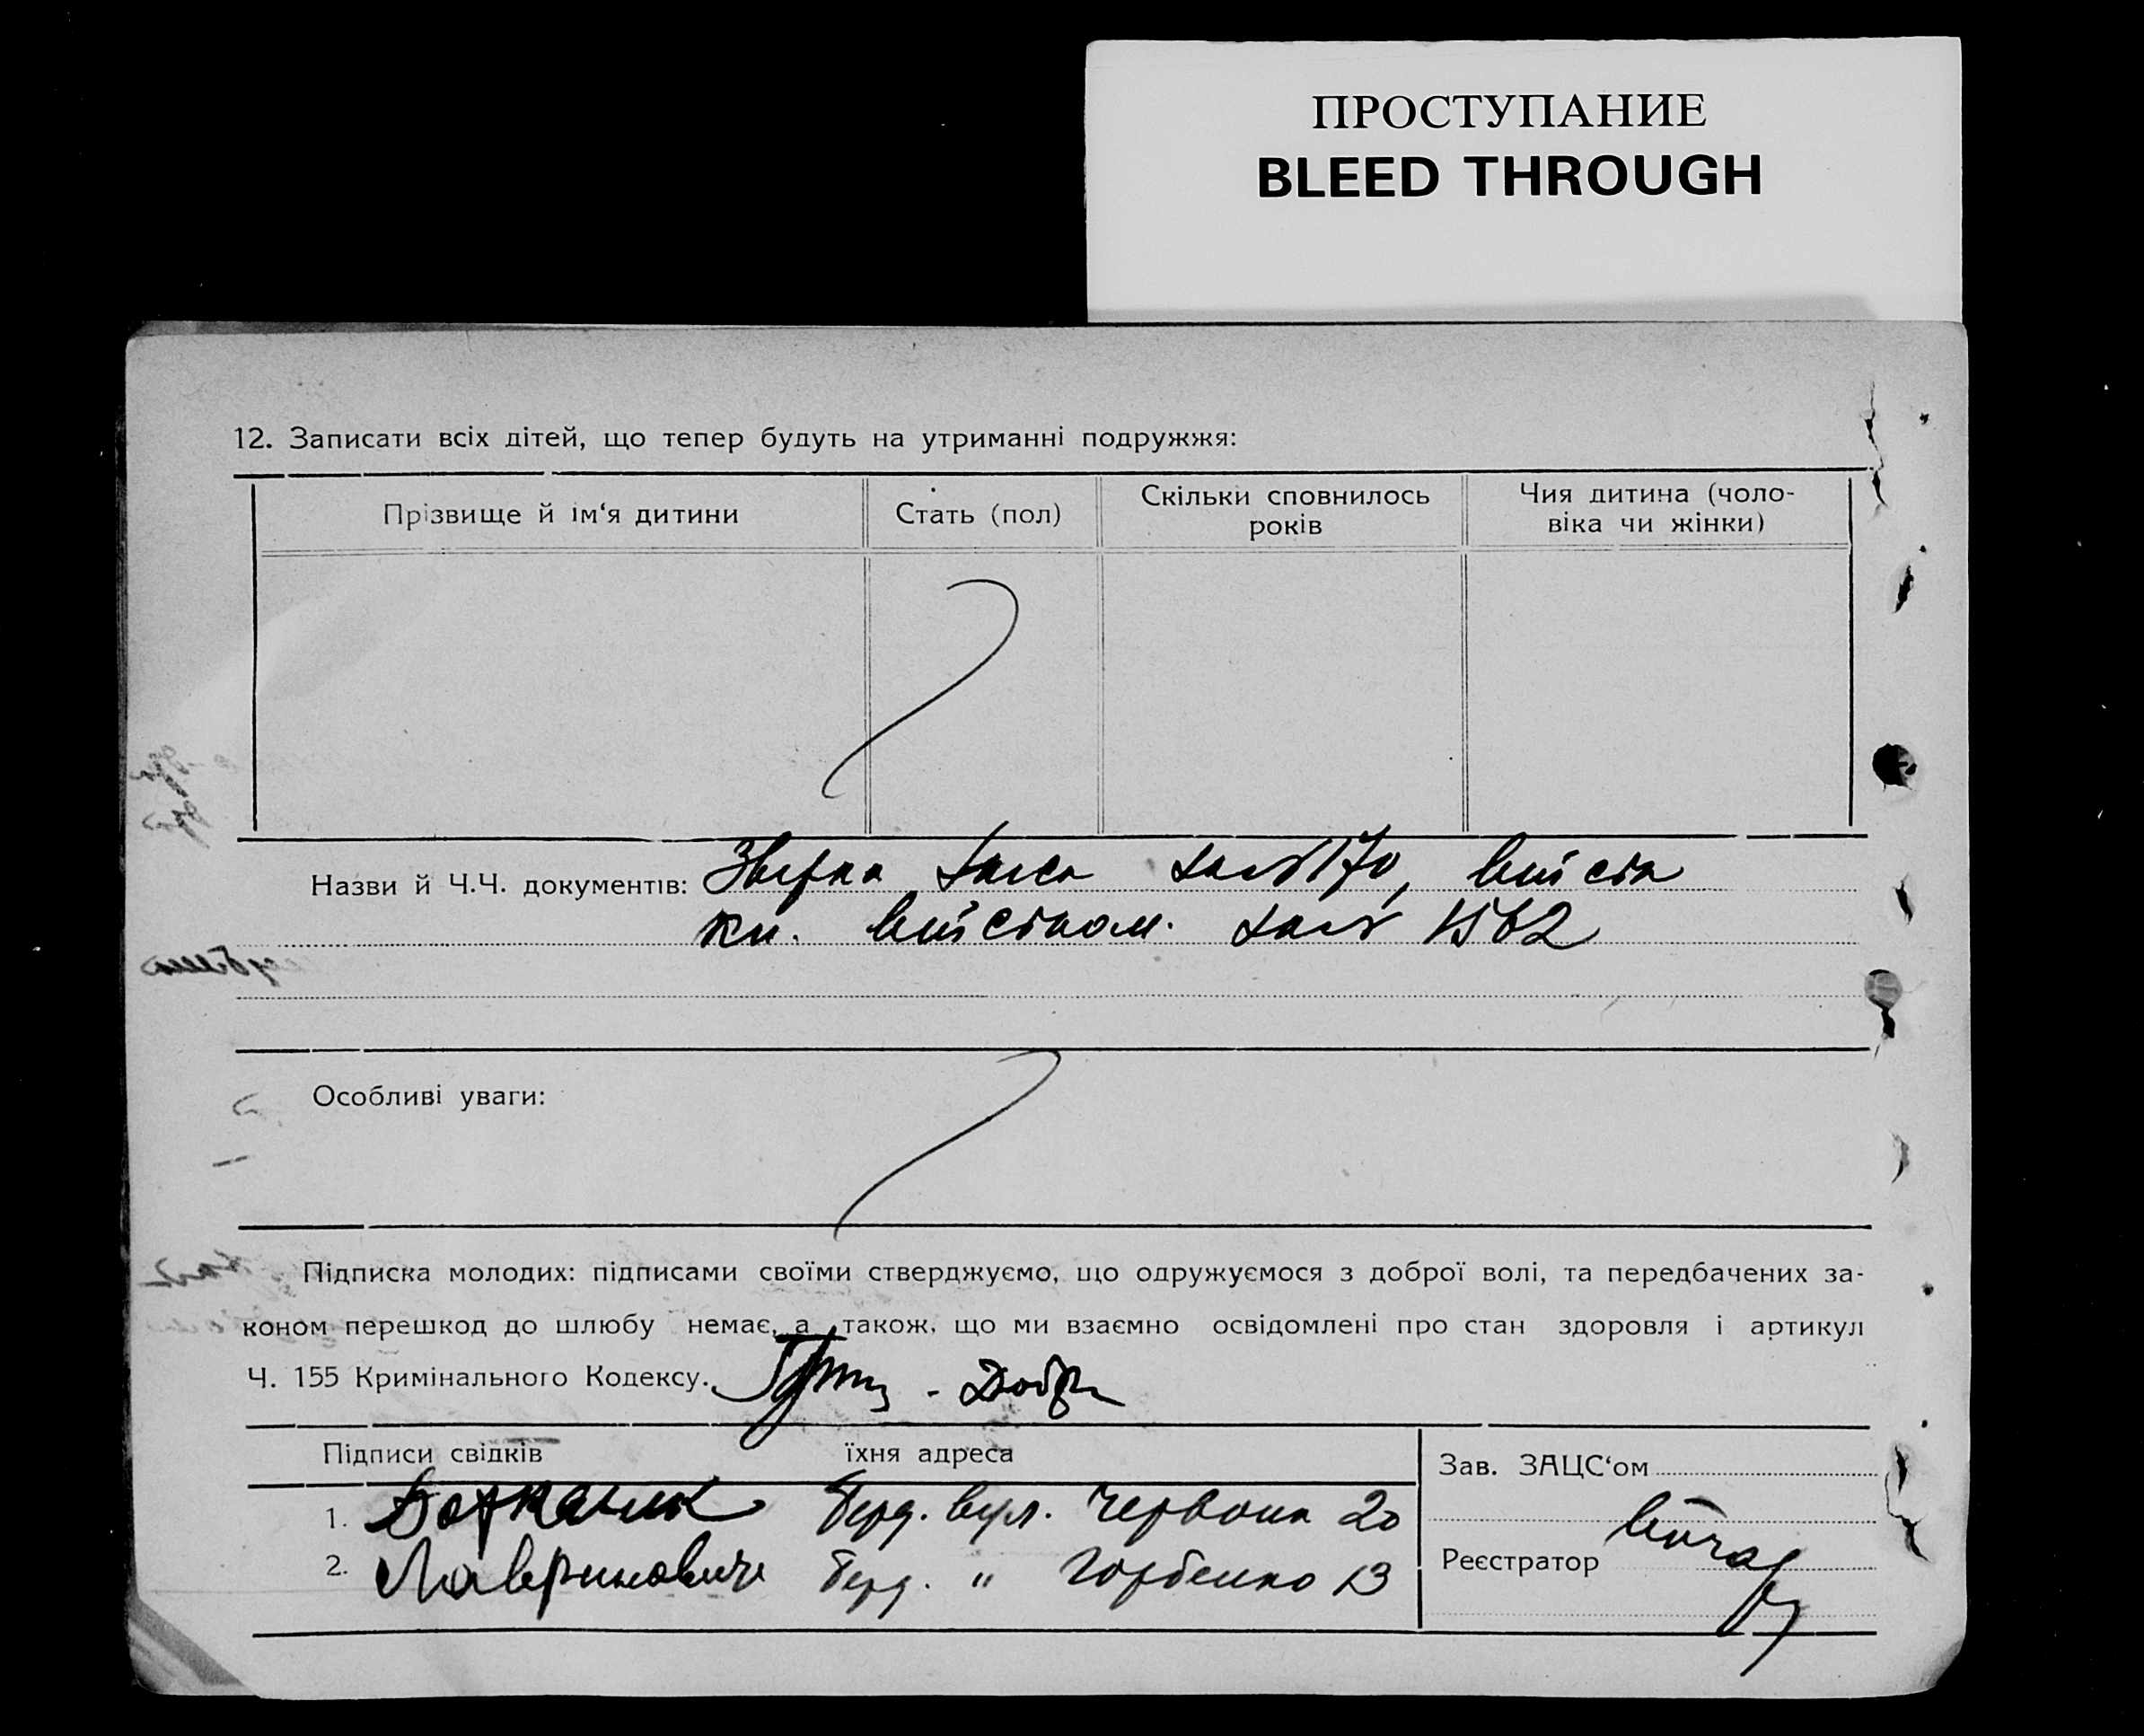 ПРОСТУПАНИЕ
BLEED THROUGH
12. Записати всіх дітей, що тепер будуть на утриманні подружжя:
Прізвище й ім‘я дитини
Стать (пол)
Скільки сповнилось
років
Чия дитина (чоло-
віка чи жінки)
Назви й Ч.Ч. документів:
кн. 1562
Особливі уваги:
Підписка молодих: підписами своїми стверджуємо, що одружуємося з доброї волі, та передбачених за-
коном перешкод до шлюбу немає, а також, що ми взаємно освідомлені про стан здоровля і артикул
Ч. 155 Кримінального Кодексу.
Підписи свідків їхня адреса
1. вул. Червона 20
2. Лавринович " Горбенко 13
Зав. ЗАЦС‘ом
Реєстратор